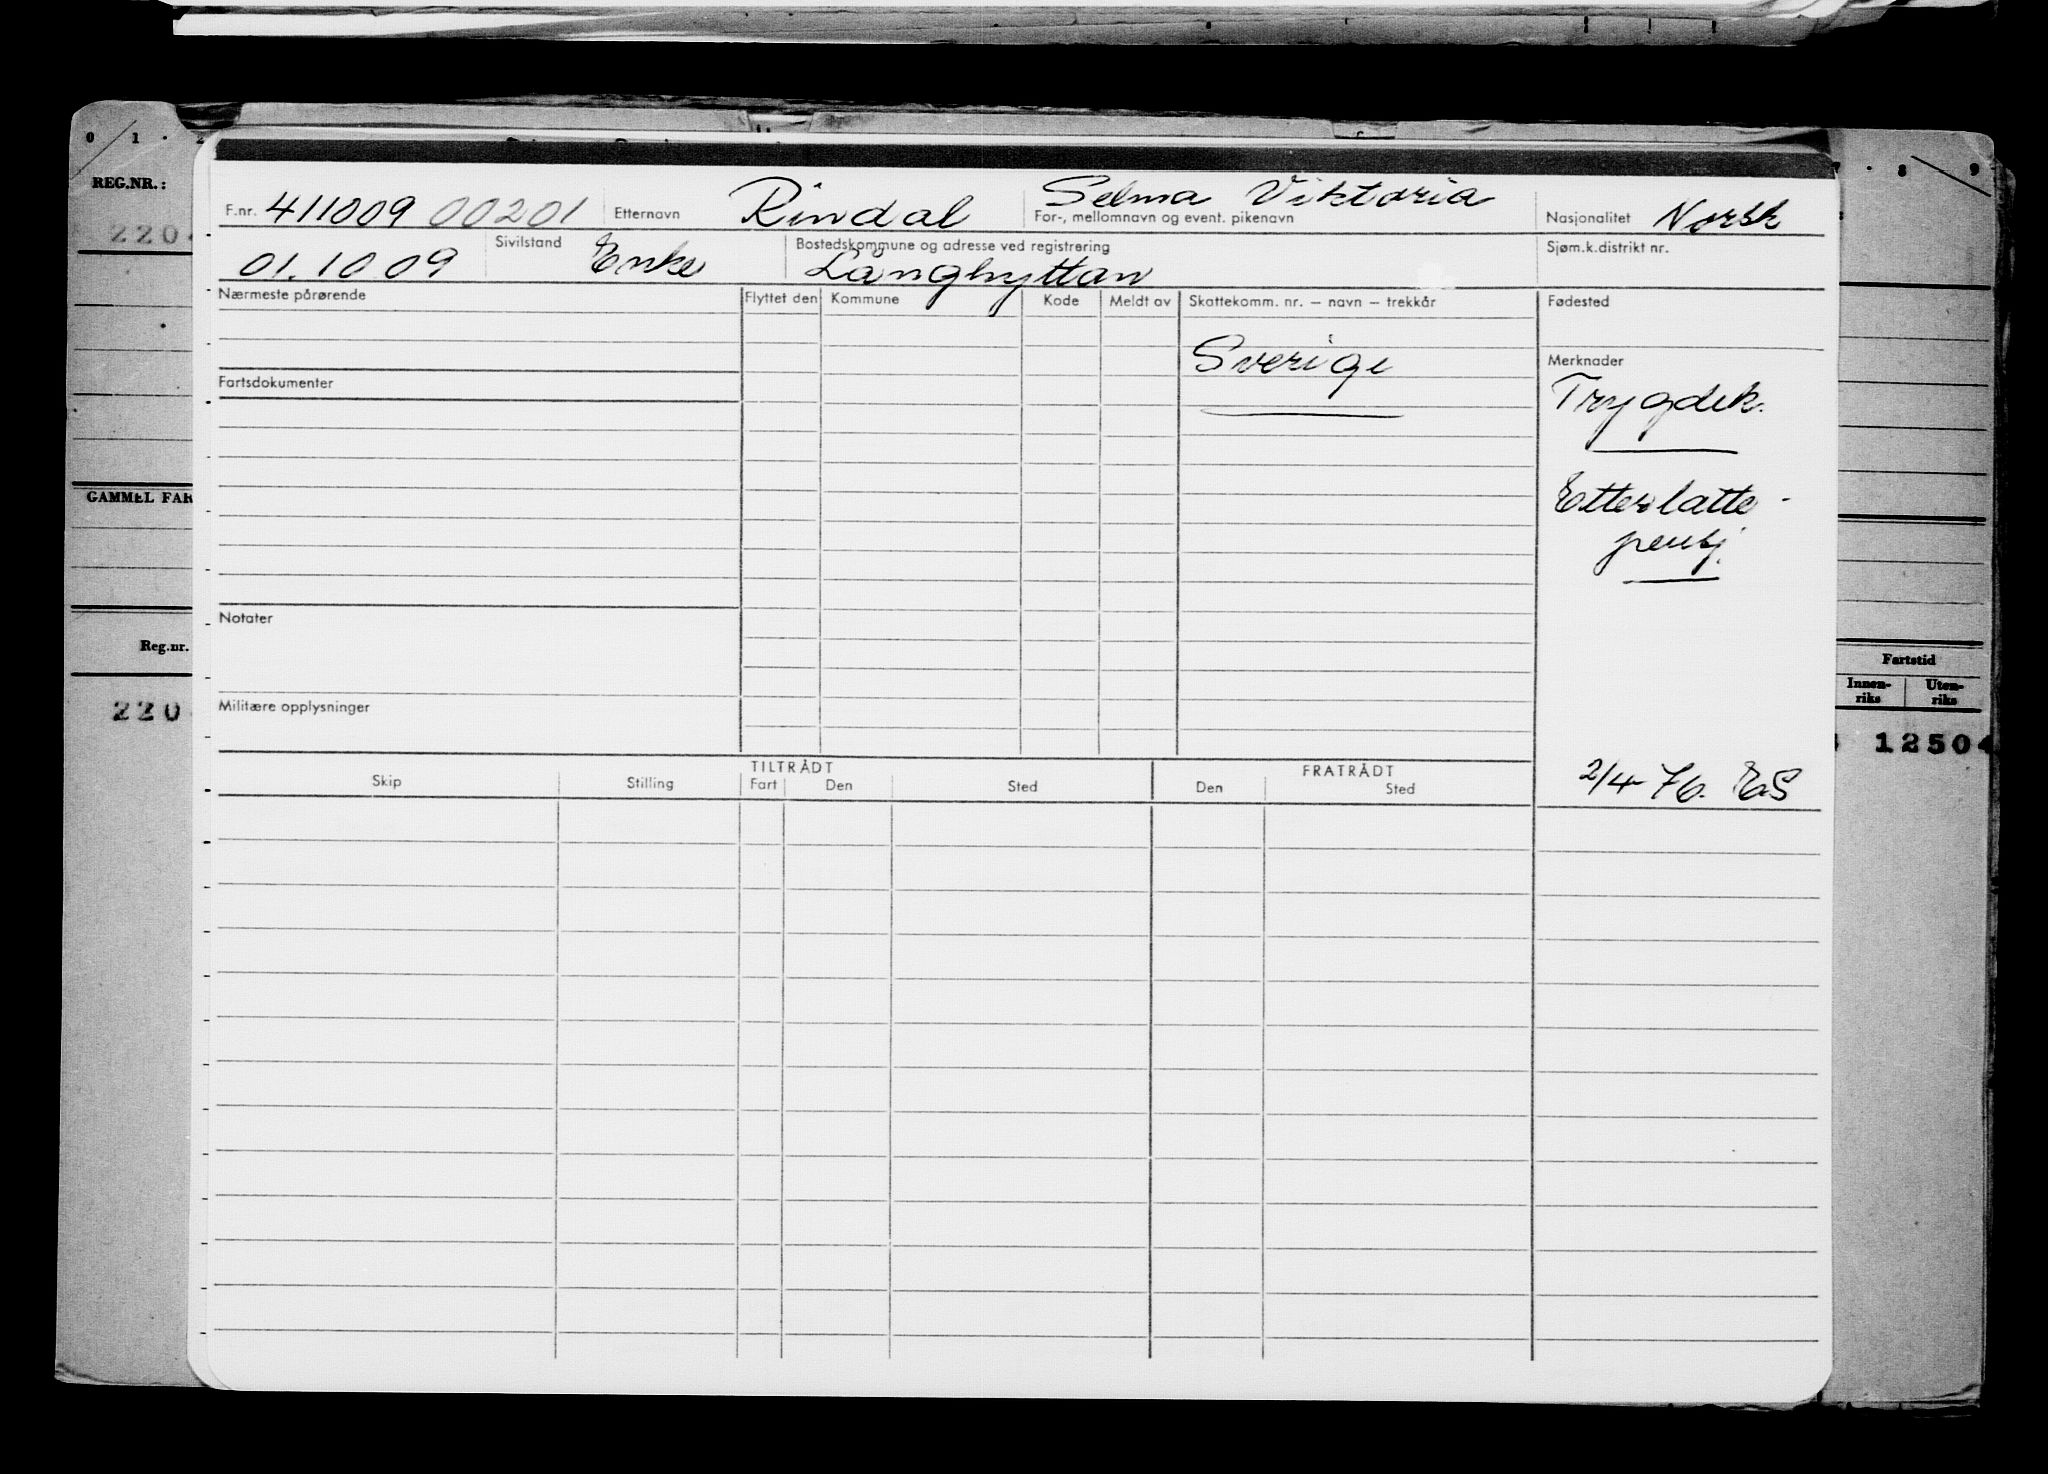 0 1 2
7 8 9
REG.NR.:
220
F.nr. 411009 00201 Etternavn Rindal Selma Viktoria
For-, mellomnavn og event. pikenavn Nasjonalitet Norsk
01.10 09 Sivilstand Enke Bostedskommune og adresse ved registrering Sjøm.k.distrikt nr.
Långhyttan
Nærmeste pårørende Flyttet den Kommune Kode Meldt av Skattekomm. nr. – navn – trekkår Fødested
Sverige
Merknader
Fartsdokumenter
Trygdek.
Etterlatte-
pensj.
GAMMEL FAR
Notater
Reg.nr.
Fartstid
Innen-
riks
Uten-
riks
220
Militære opplysninger
12504
TILTRÅDT FRATRÅDT
Skip Stilling Fart Den Sted Den Sted
2/4-76. ES